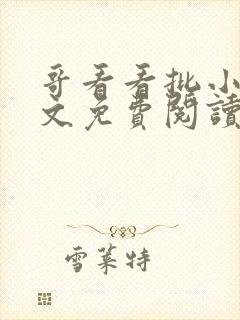 哥看看批小
文免費閱讀
雪萊特